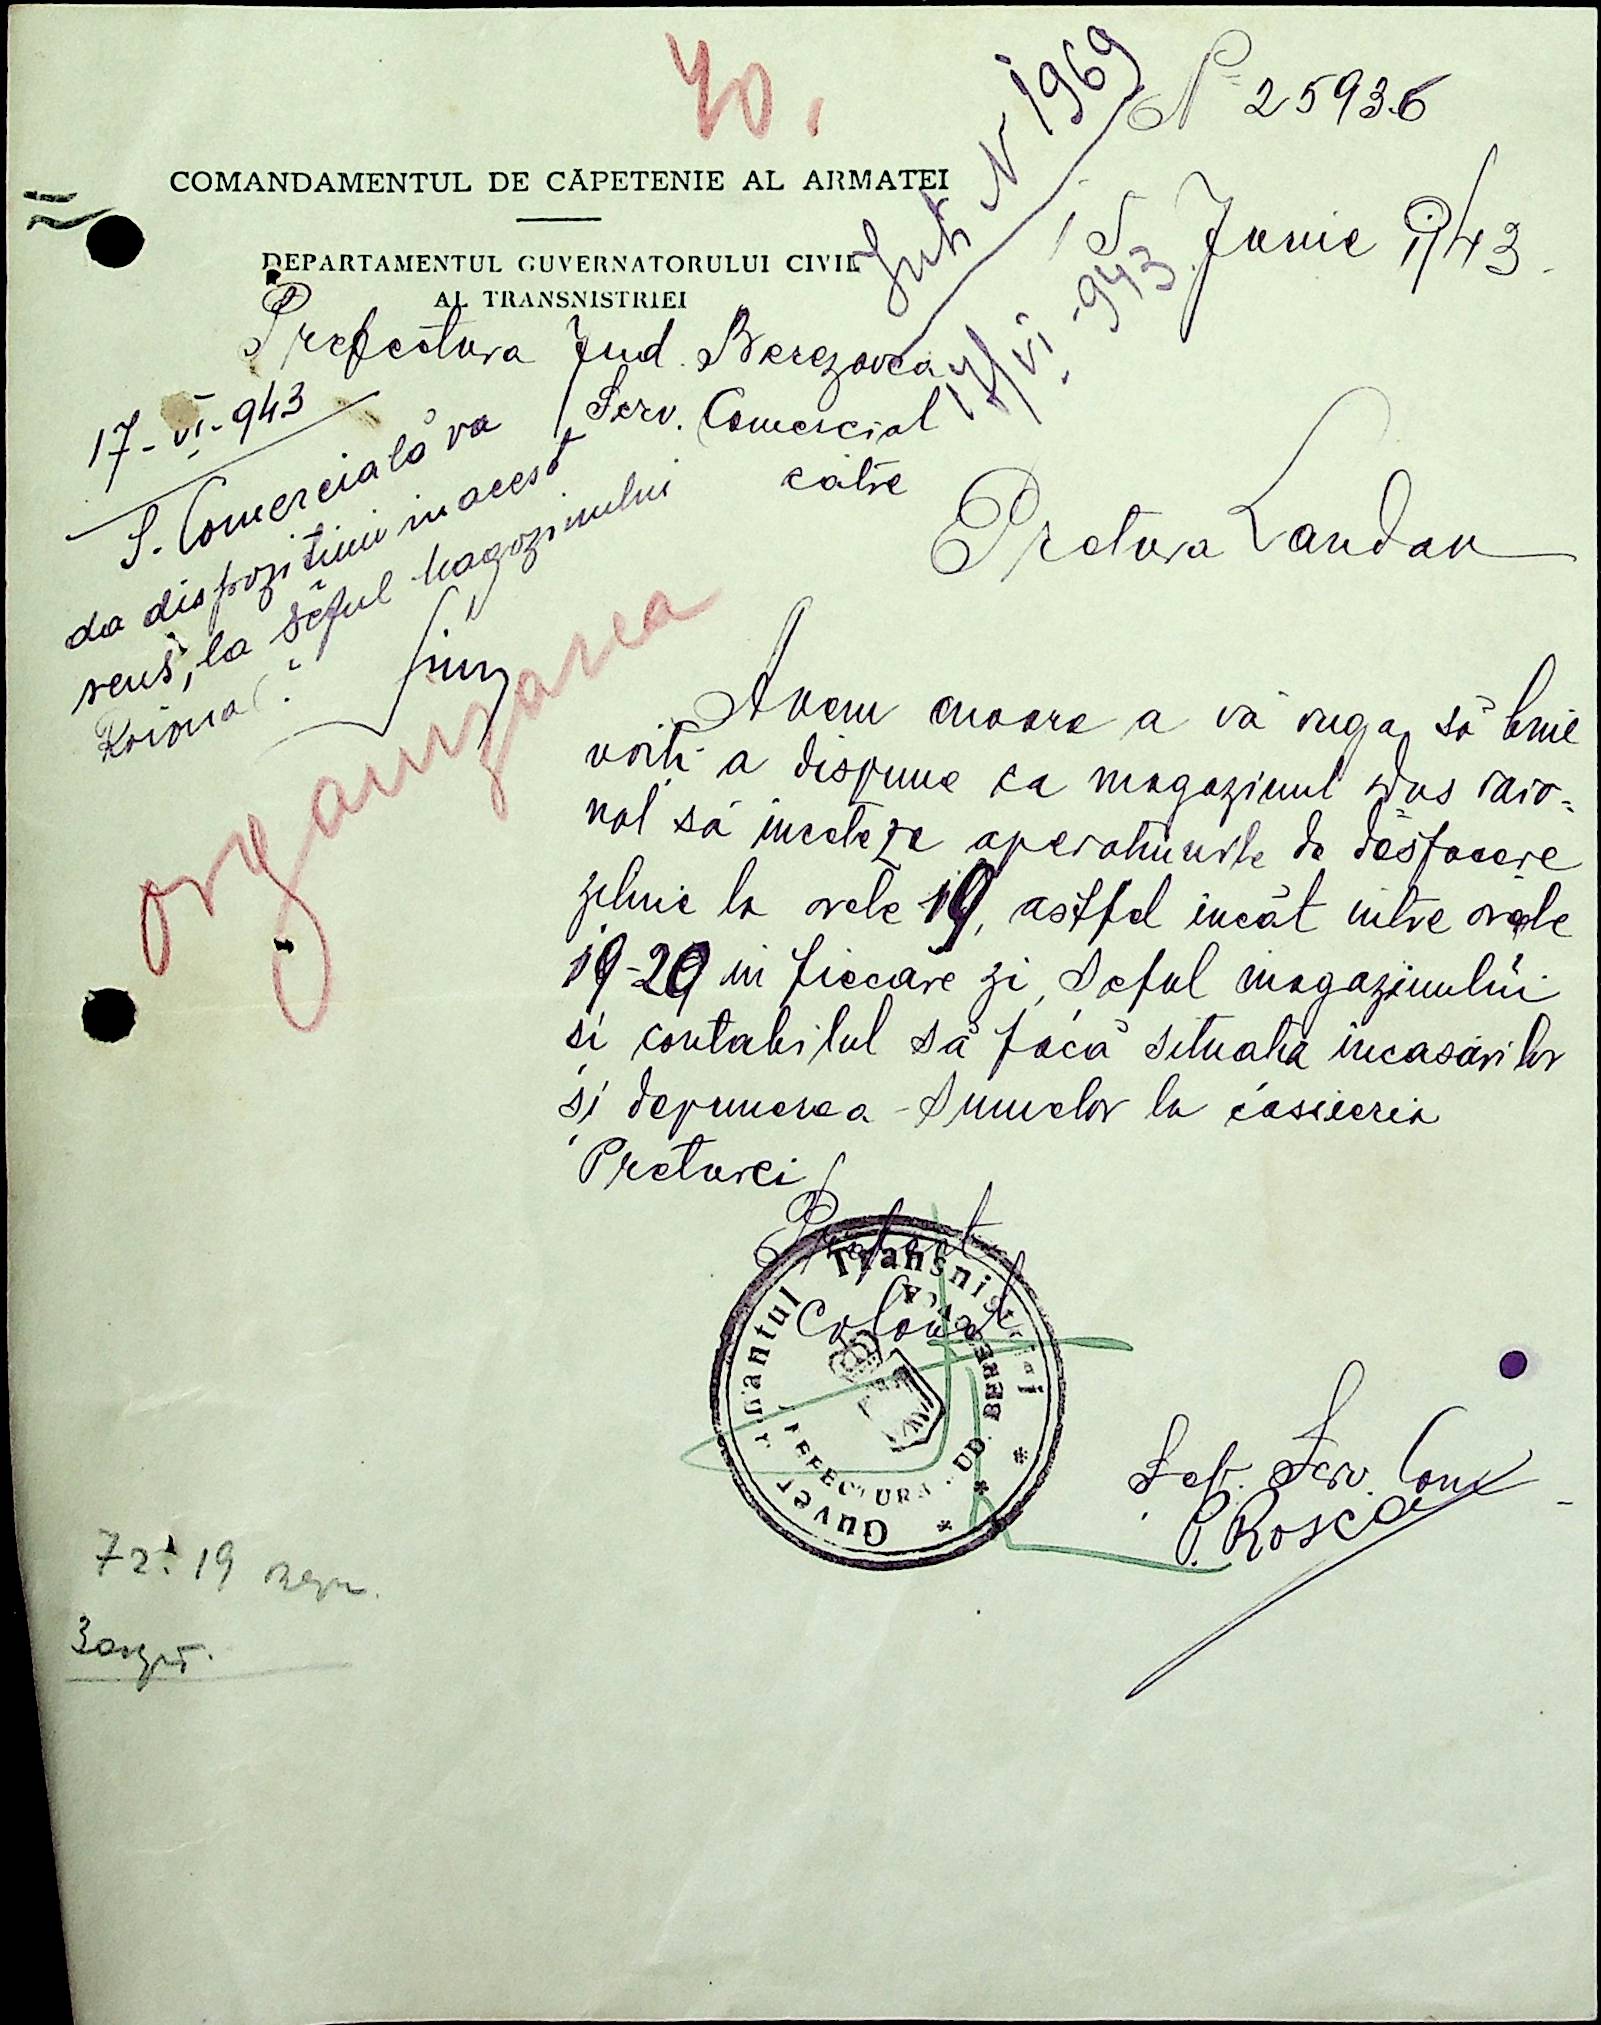 40.
Nº 25936
Intr N 1969
17/VI-943
COMANDAMENTUL DE CĂPETENIE AL ARMATEI
DEPARTAMENTUL GUVERNATORULUI CIVIL
AL TRANSNISTRIEI
15 Junie 943
Prefectura Jud. Berezovca
Serv. Comercial
către
Pretura Landau
17-VI-943
S. Comercială va
da dispozitiuni in acest
sens, la șeful magazinului
Raional.
organizarea
Avem onoare a vă ruga să bine
voiți a dispune ca magazinul raio-
nal să inceteze operatiunile de desfacere
zilnic la orele 19, astfel incât intre orele
19-20 in fiecare zi, Șeful magazinului
și contabilul să facă situatia incasărilor
și depunerea sumelor la casieria
Preturei
Prefect
Colonel
Guvernamantul Transnistriei
PREFECTURA JUD. BEREZOVCA
Șef. Serv. Com
P. Rosca
72. 19